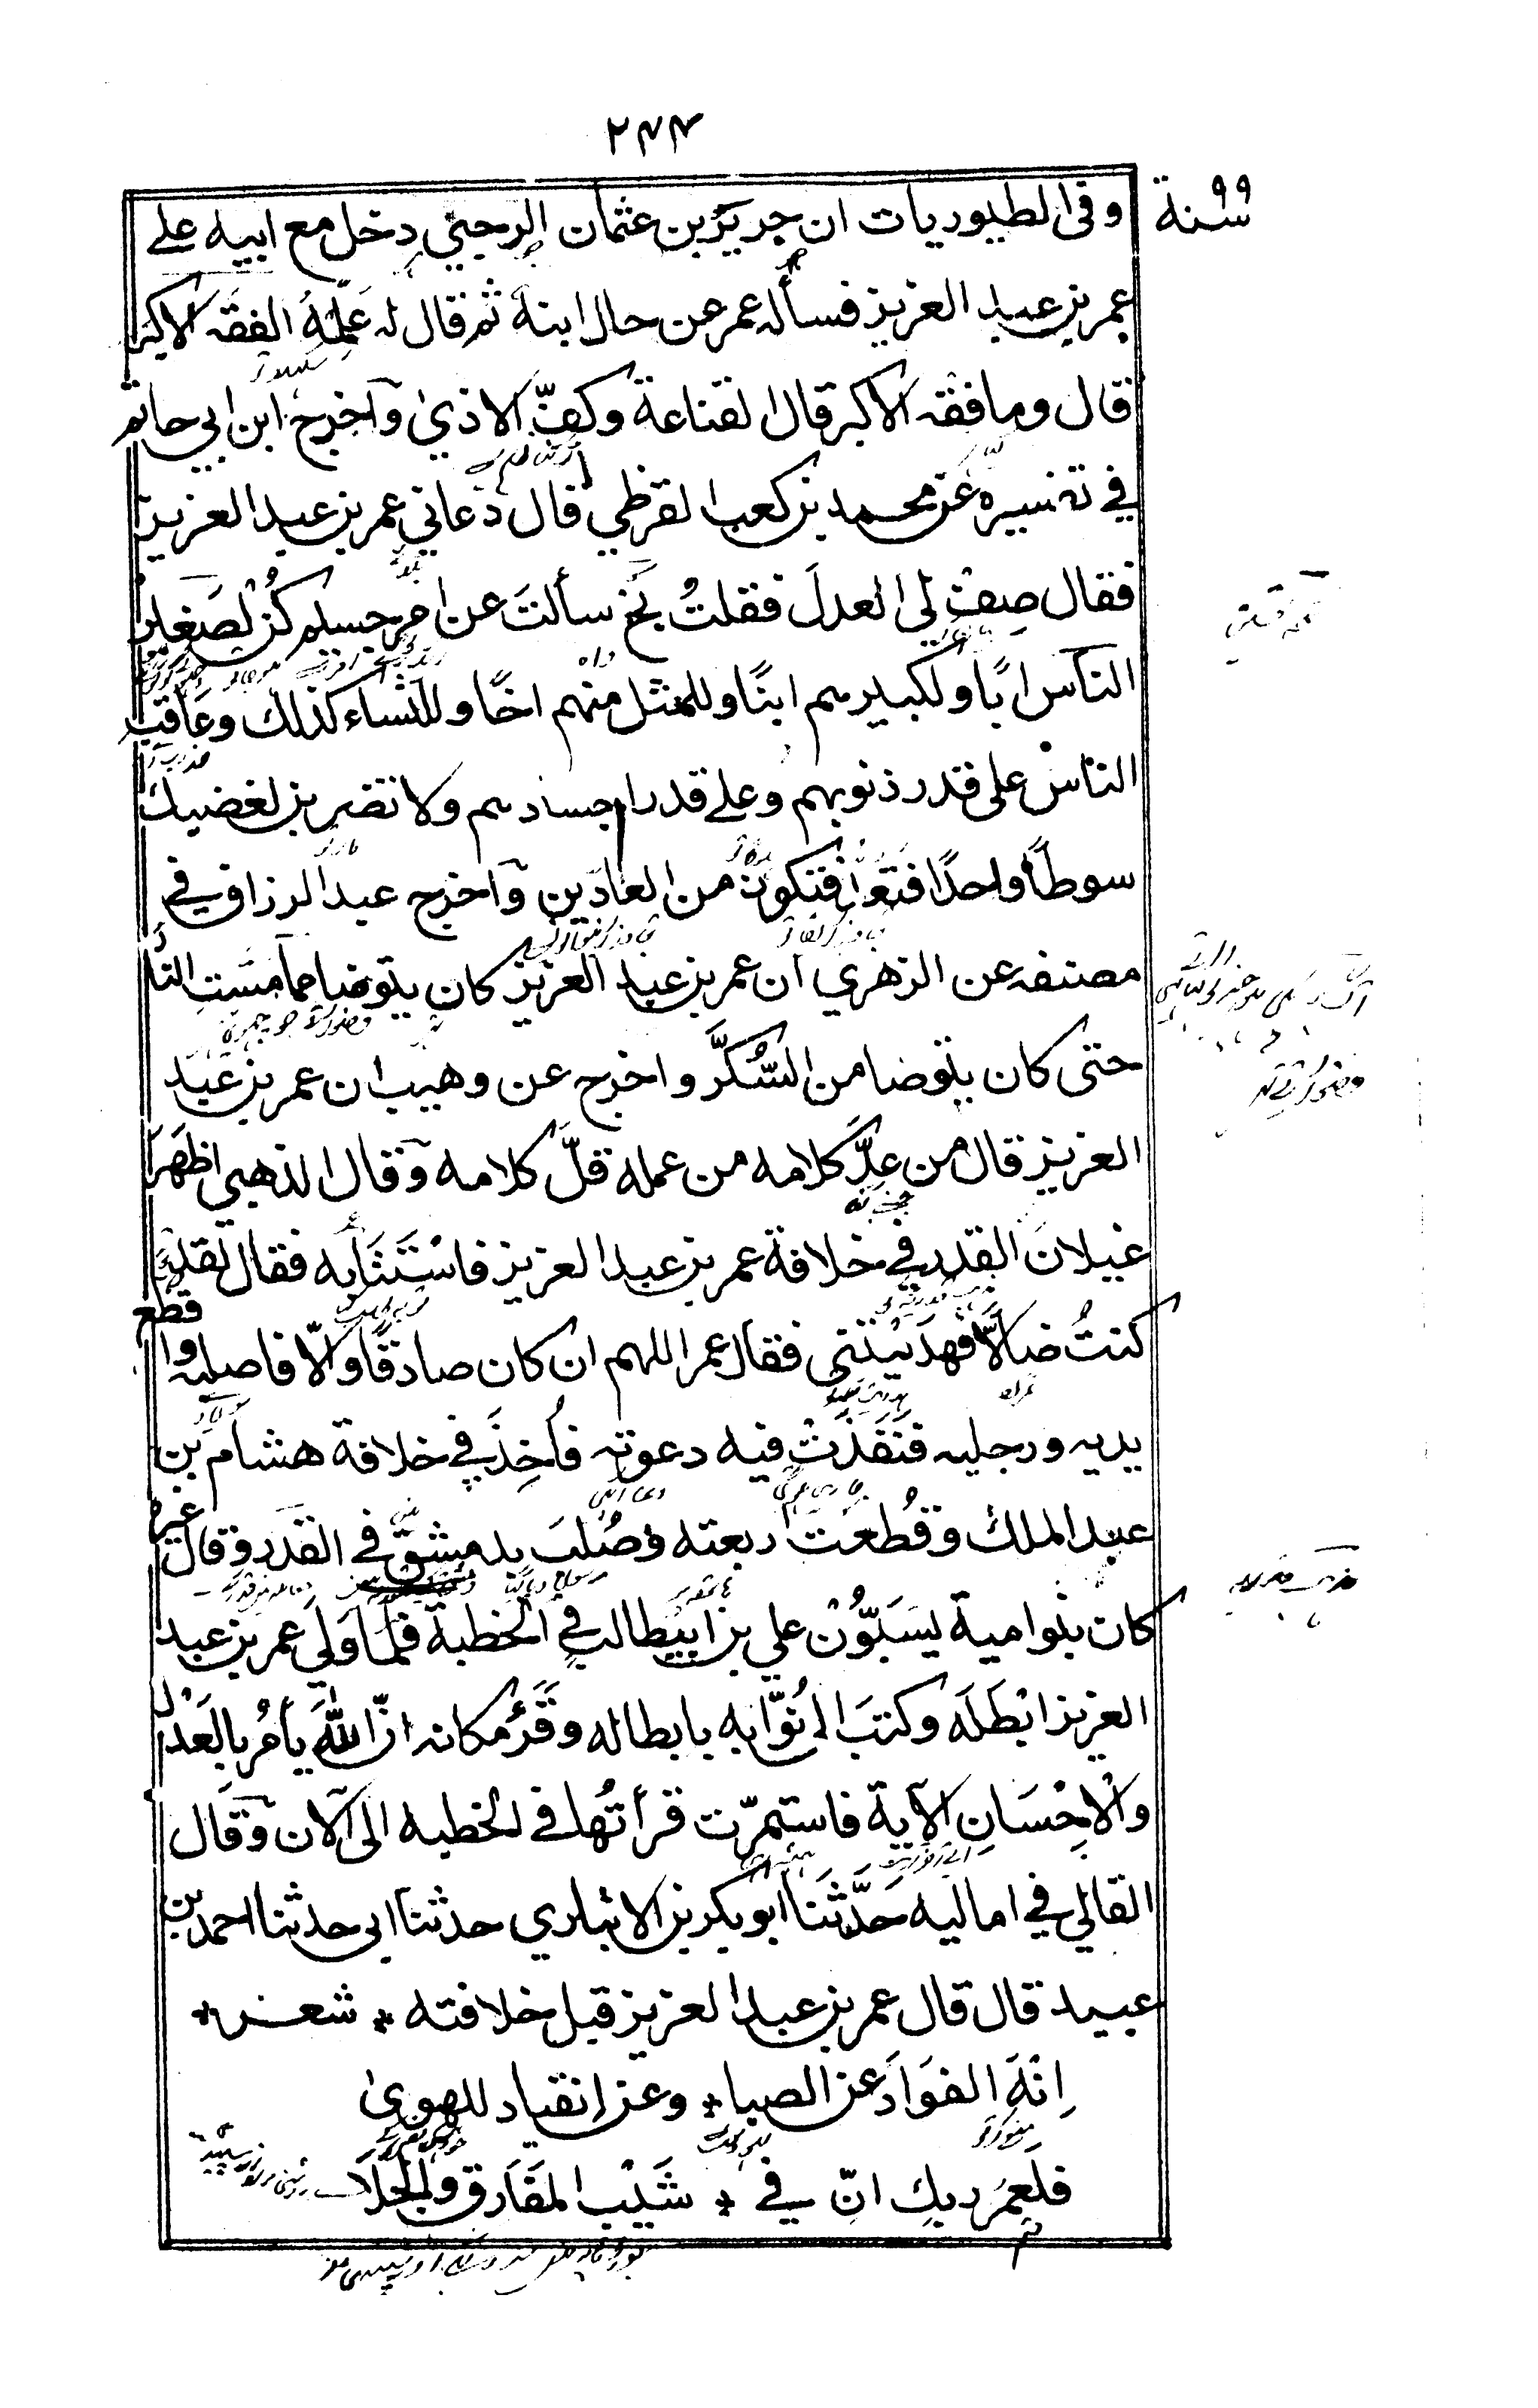 ٢٤٤
سنة ٩٩
وفى الطيوريات ان جرير بن عثمان الرحبي دخل مع ابيه على
عمر بن عبد العزيز فسأله عمر عن حال ابنه ثم قال له عَلِّمْهُ الفقه الاكبر
قال وما فقه الاكبر قال القناعة وكفّ الاذىٰ وآخرج ابن ابي حاتم
في تفسيره عن محمد بن كعب القرظي قال دعاني عمر بن عبد العزيز
فقال صِفْ لى العدلَ فقلتُ بَخٍ سألتَ عن امرٍ جسيم كُنْ لصَغير
الناس ابًا ولكبيرهم ابنًا وللمثل منهم اخًا وللنساء كذلك وعَاقِب
الناسَ على قدر ذنوبهم وعلى قدر اجسادهم ولا تضربن لغضبك
سوطًا واحدًا فتَعَدّٰ فتكون من العادّين وآخرج عبد الرزاق في
مصنفه عن الزهري ان عمر بن عبد العزيز كان يتوضا مما مَسَّتِ النار
حتى كان يتوضا من السُّكَّر واخرج عن وهيب ان عمر بن عبد
العزيز قال من عدّ كلامه من عمله قلّ كلامه وقال الذهبي اظهَرَ
غيلان القدر في خلافة عمر بن عبد العزيز فاسْتَتَابه فقال لقد
كنتُ ضالًّا فهدَيْتَني فقال عمر اللهم ان كان صادقًا والّا فاصلبه واقطع
يديه ورجليه فنَفَذَتْ فيه دعوته فأُخِذَ في خلافة هشام بن
عبد الملك وقُطعَت اربعته وصُلبَ بدمشق في القدر وقال غيره
كان بنو امية يَسُبّونَ علي بن ابيطالب في الخطبة فلما وَلِيَ عمر بن عبد
العزيز ابْطَلَه وكتبَ الى نُوّابه بابطاله وقَرَءَ مكانه انّ اللّٰهَ يأمُر بالعَدْل
والاِحْسَانِ الآية فاستمرّت قرأتُها في الخطبه الى الآن وقال
القالي في اماليه حَدَّثَنا ابو بكر بن الانباري حدثنا ابى حدثنا احمد بن
عبيد قال قال عمر بن عبد العزيز قبل خلافته * شعر *
اِنْهَ الفوَادَ عن الصبا * وعن انقياد للهوىٰ
فلعمر ربك انّ في * شَيْب المفَارق والجلَا